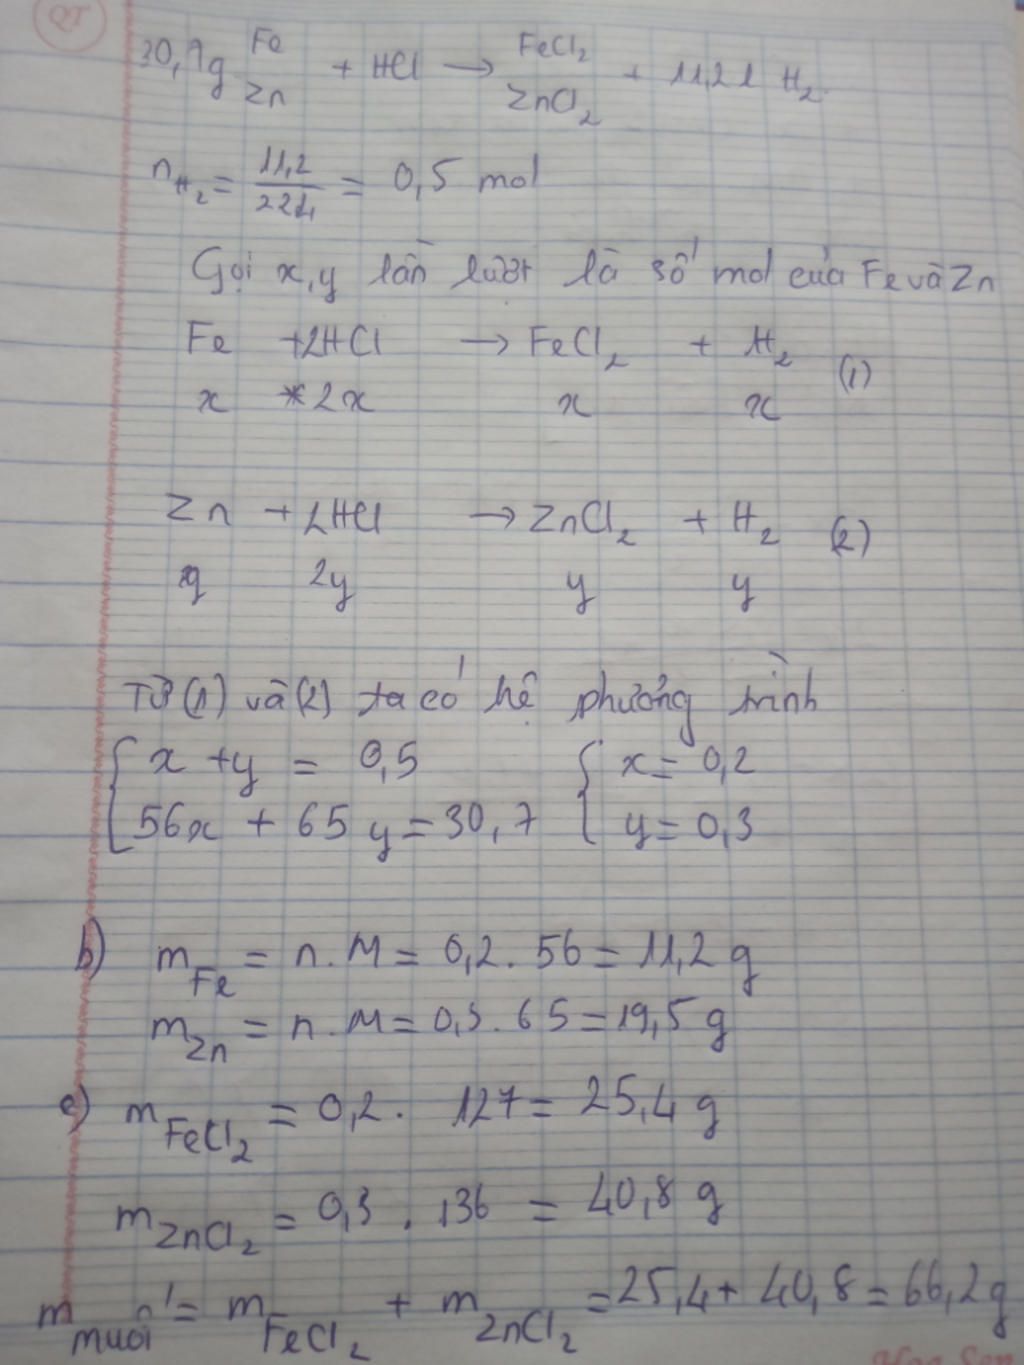 QT
30,7g Fe + HCl → FeCl₂ + 11,2 l H₂.
Zn ZnCl₂
nH₂ = 11,2/22,4 = 0,5 mol
Gọi x, y lần lượt là số mol của Fe và Zn
Fe +2HCl → FeCl₂ + H₂ (1)
x 2x x x
Zn + 2HCl → ZnCl₂ + H₂ (2)
y 2y y y
Từ (1) và (2) ta có hệ phương trình
{ x + y = 0,5 { x = 0,2
56x + 65y = 30,7 y = 0,3
b) mFe = n.M = 0,2.56 = 11,2 g
mZn = n.M = 0,3.65 = 19,5 g
c) mFeCl₂ = 0,2. 127 = 25,4 g
mZnCl₂ = 0,3 . 136 = 40,8 g
m muối = mFeCl₂ + mZnCl₂ = 25,4 + 40,8 = 66,2g